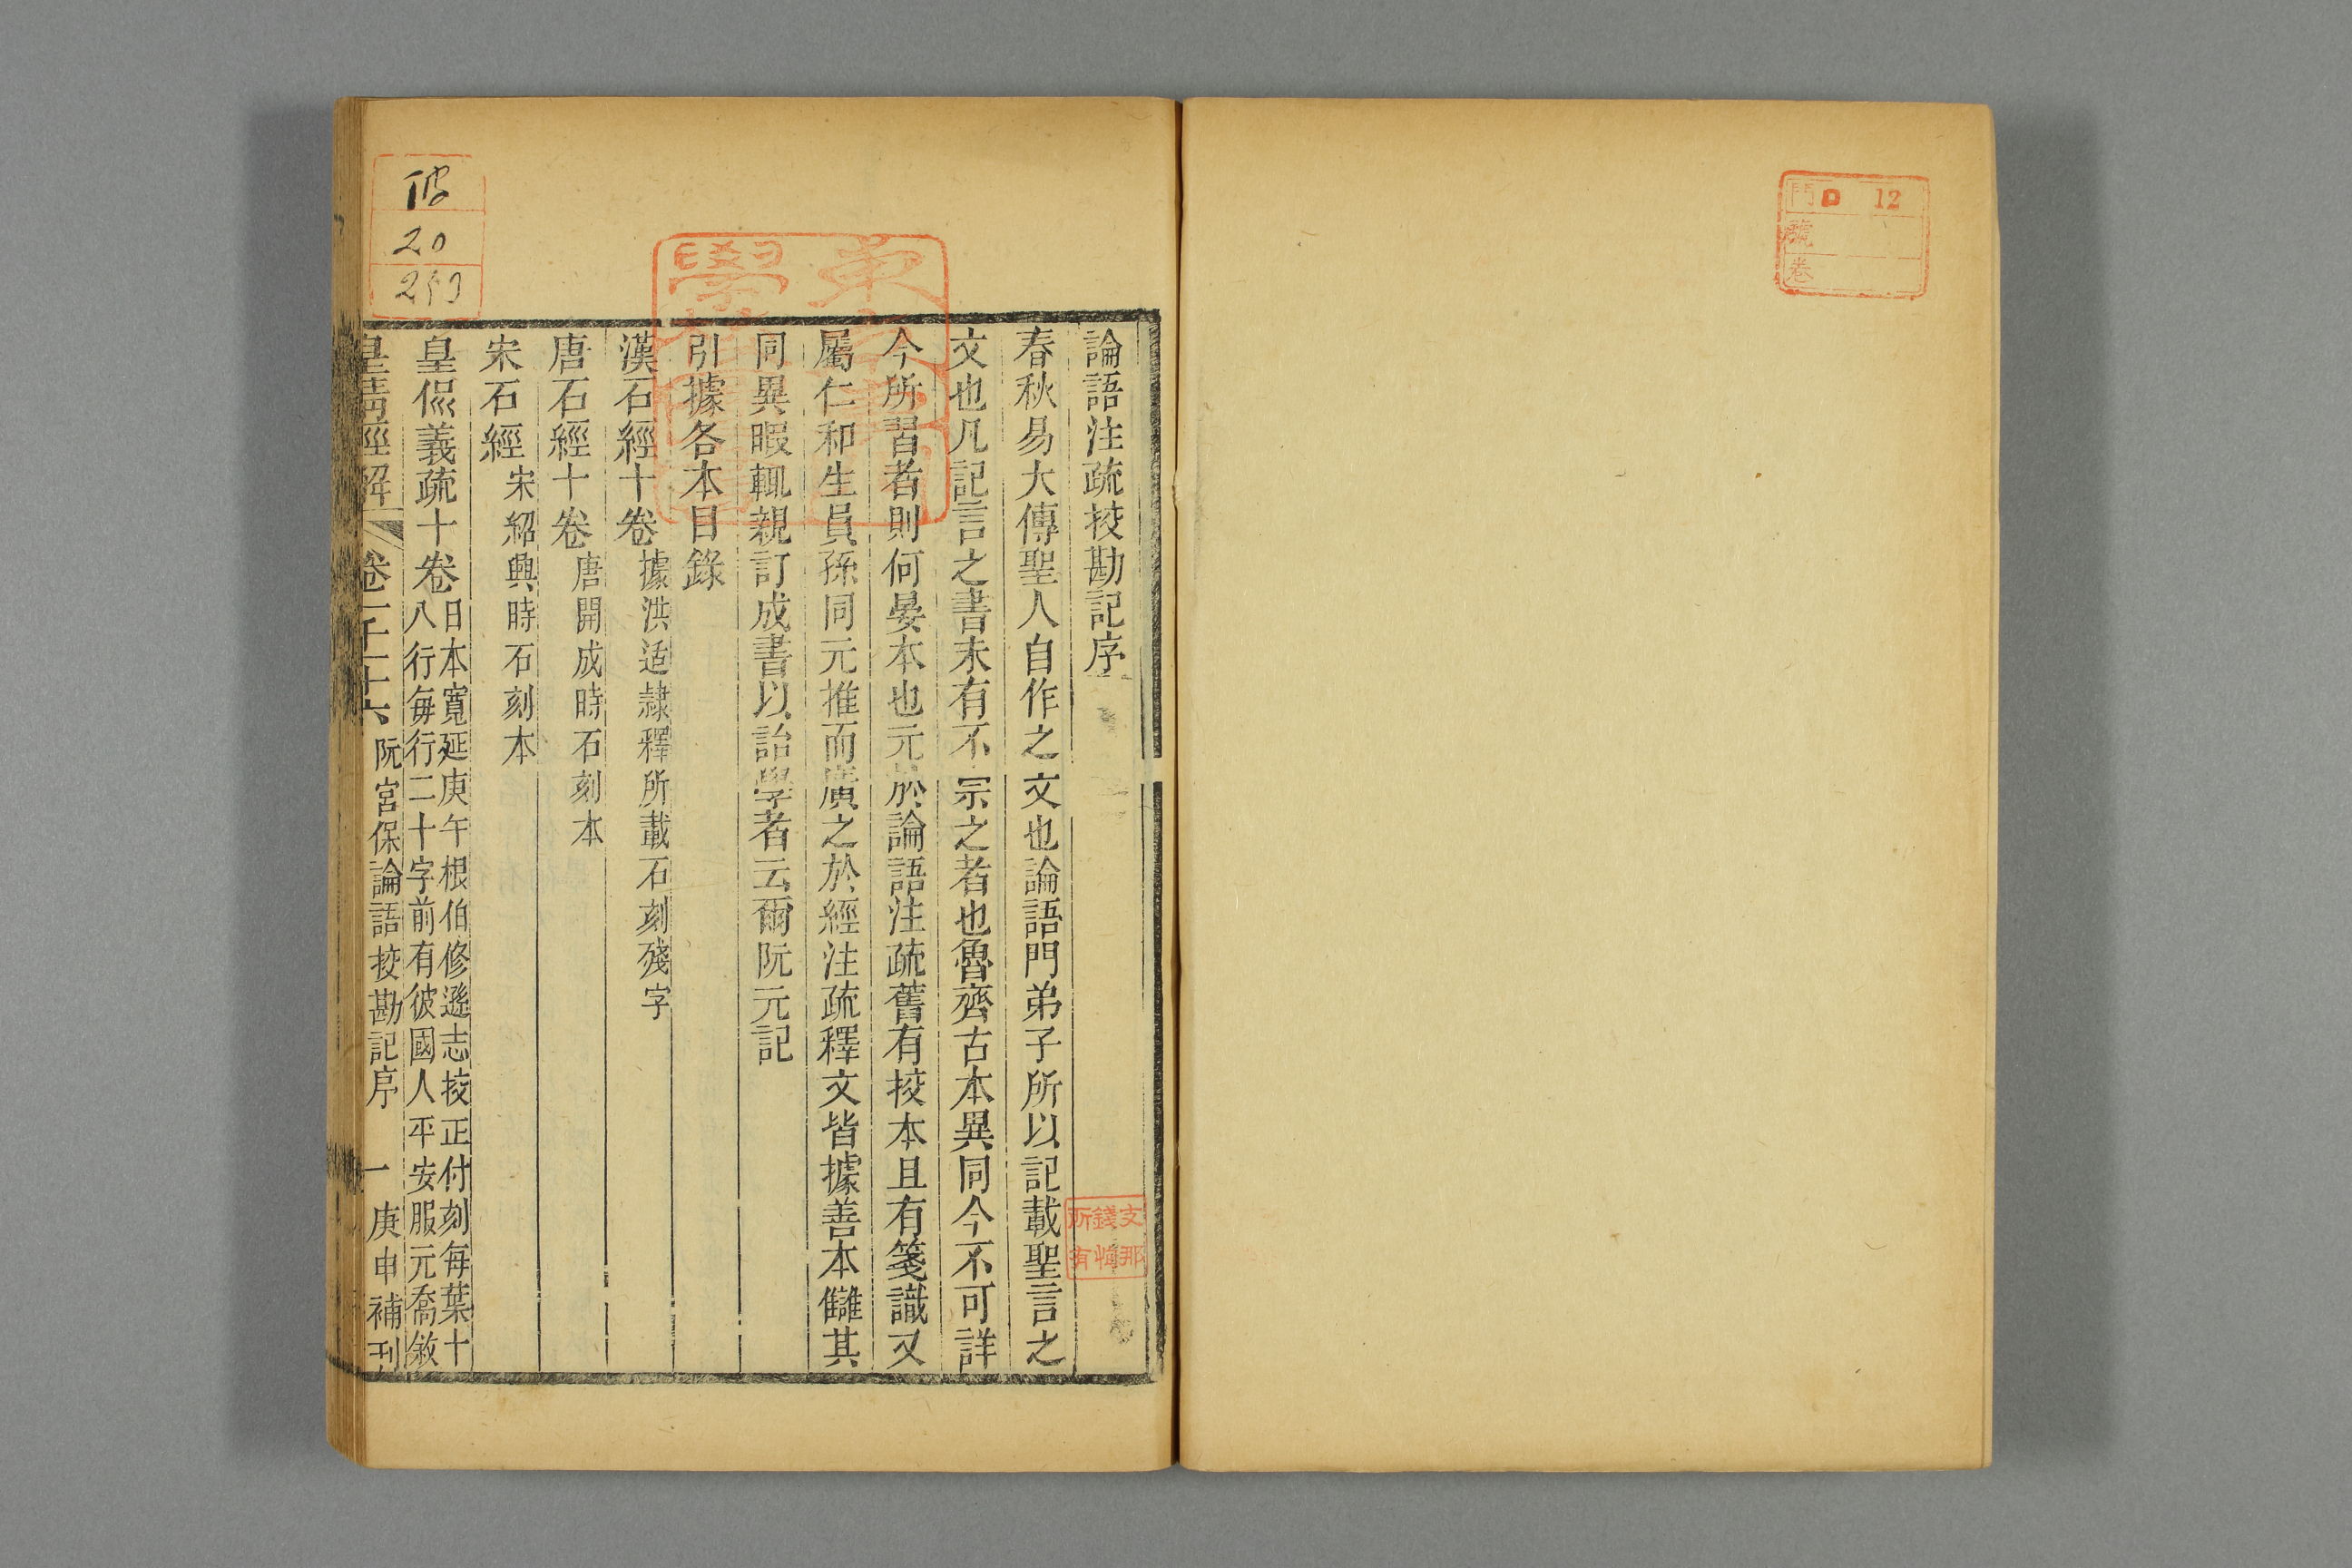 門 D 12
號
卷
論語注疏挍勘記序
春秋易大傳聖人自作之文也論語門弟子所以記載聖言之
文也凡記言之書未有不宗之者也魯齊古本異同今不可詳
今所習者則何晏本也元於論語注疏舊有挍本且有箋識又
屬仁和生員孫同元推而廣之於經注疏釋文皆據善本讎其
同異暇輒親訂成書以詒學者云爾阮元記
引據各本目錄
漢石經十卷 據洪适隸釋所載石刻殘字
唐石經十卷 唐開成時石刻本
宋石經 宋紹興時石刻本
皇侃義疏十卷 日本寬延庚午根伯修遜志挍正付刻每葉十
八行每行二十字前有彼國人平安服元喬敘
皇清經解 卷一千十六 阮宮保論語挍勘記序 一 庚申補刊
20